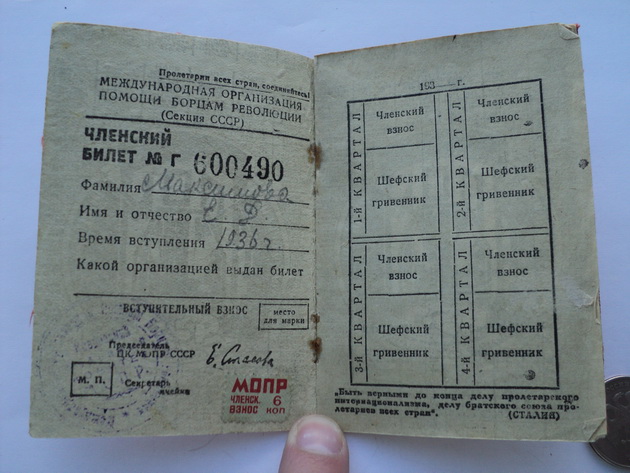 Пролетарии всех стран, соединяйтесь!
МЕЖДУНАРОДНАЯ ОРГАНИЗАЦИЯ
ПОМОЩИ БОРЦАМ РЕВОЛЮЦИИ
(Секция СССР)
ЧЛЕНСКИЙ
БИЛЕТ № Г 600490
Фамилия Максимова
Имя и отчество Е. Д.
Время вступления 1936 г.
Какой организацией выдан билет
ВСТУПИТЕЛЬНЫЙ ВЗНОС
место
для марки
Председатель
ЦК МОПР СССР Е. Стасова
М. П.
Секретарь
ячейки
МОПР
ЧЛЕНСК. 6
ВЗНОС КОП
193 — г.
1-й КВАРТАЛ
Членский
взнос
Шефский
гривенник
2-й КВАРТАЛ
Членский
взнос
Шефский
гривенник
3-й КВАРТАЛ
Членский
взнос
Шефский
гривенник
4-й КВАРТАЛ
Членский
взнос
Шефский
гривенник
„Быть верными до конца делу пролетарского
интернационализма, делу братского союза про-
летариев всех стран“.
(СТАЛИН)